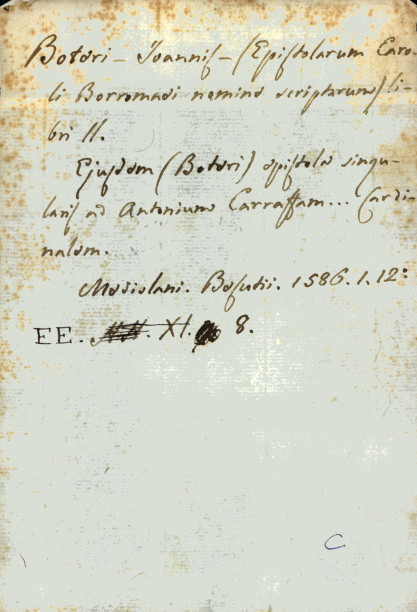 Boteri - Joannis - (Epistolarum Caro-
li Borromaei nomine scriptarum) li-
bri II.
Ejusdem (Boteri) epistolae singu-
laris ad Antonium Carraffam... Cardi-
nalem.
Mediolani. Besutii. 1586. 1. 12:
EE. XI. 8.
C